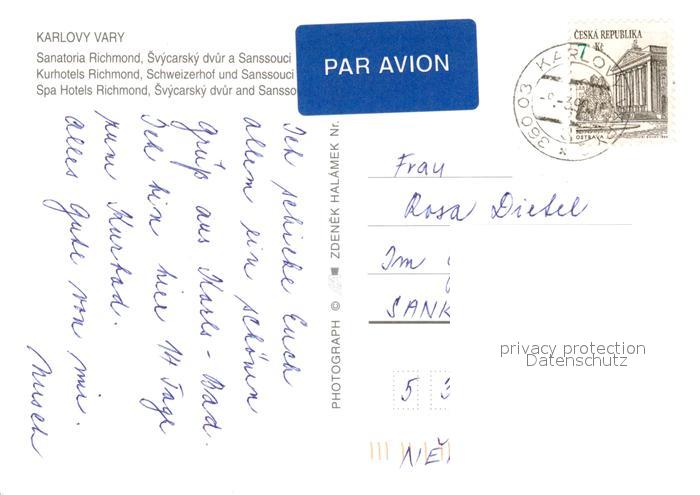 KARLOVY VARY
Sanatoria Richmond, Švýcarský dvůr a Sanssouci
Kurhotels Richmond, Schweizerhof und Sanssouci
Spa Hotels Richmond, Švýcarský dvůr and Sansso
PAR AVION
ČESKÁ REPUBLIKA
7 Kč
OSTRAVA
360 03 KARLOVY VARY
Ich schicke Euch
allen ein schönen
Gruß aus Karls-Bad.
Ich bin hier 14 Tage
zum Kurbad.
Alles Gute von mir.
PHOTOGRAPH © ZDENĚK HALÁMEK Nr.
Frau
Rosa Dietel
Im
SANK
5 3
NĚ
privacy protection
Datenschutz